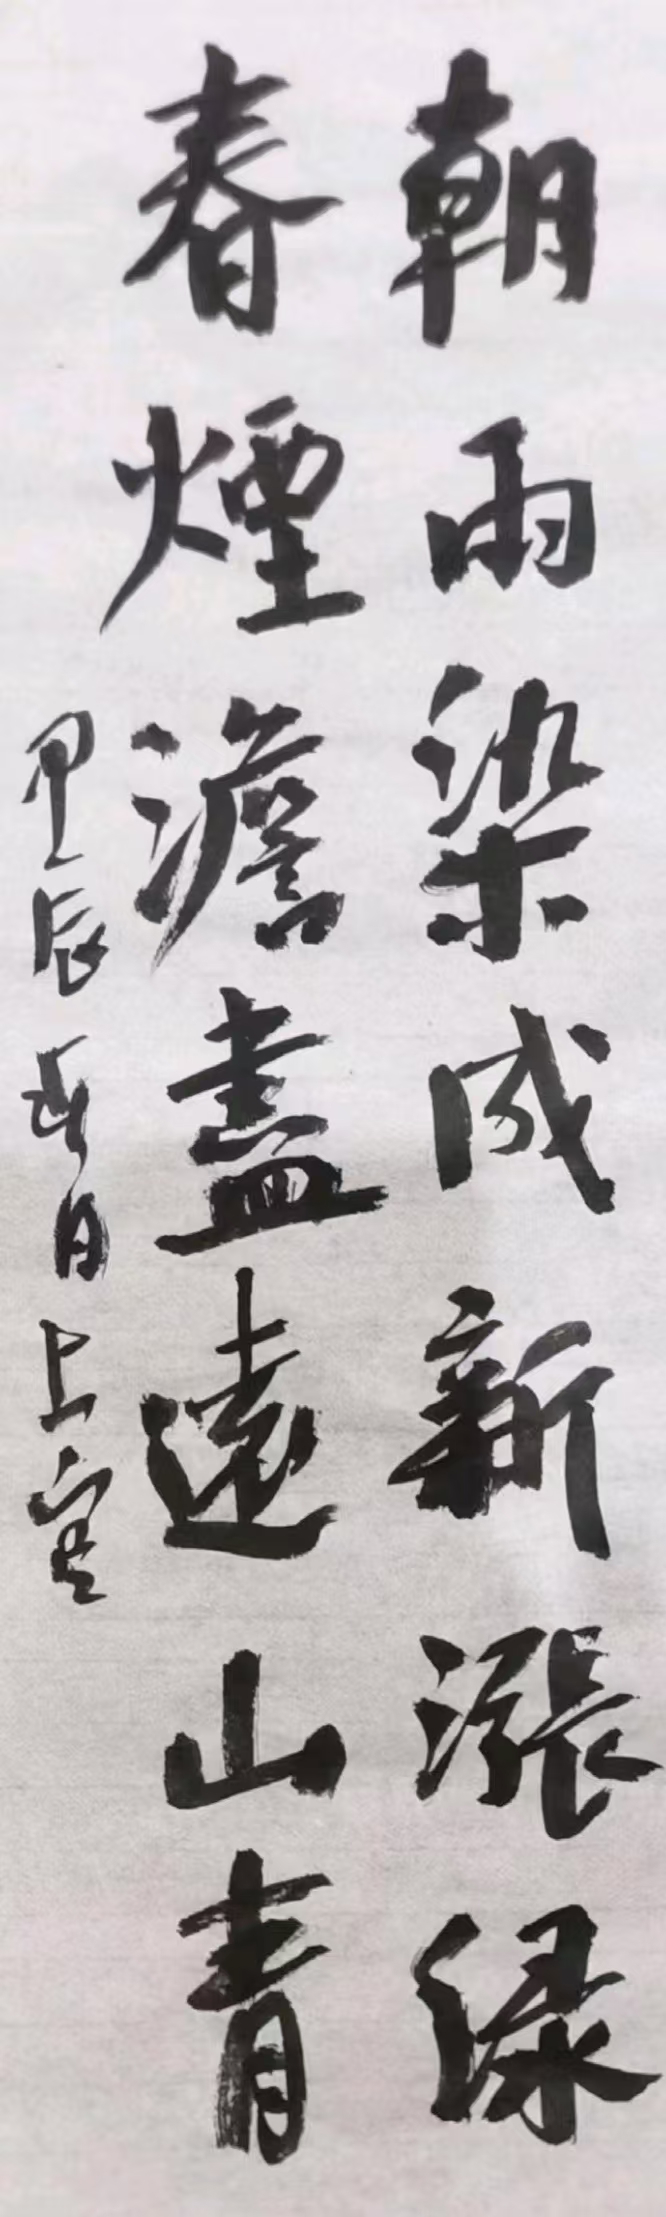 朝雨染成新漲綠
春煙澹盡遠山青
甲辰春日上寒